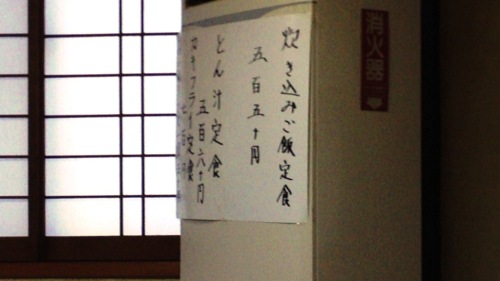 炊き込みご飯定食
五百五十円
とん汁定食
五百六十円
カキフライ定食
七百円
消火器